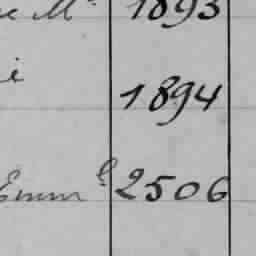 e M.e 1893
i
1894
Emm.le 2506